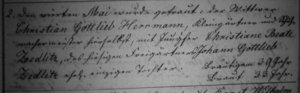 2. den vierten Mai wurde getraut: der Wittwer
Christian Gottlieb Herrmann, Kleingärtner und
machermeister hierselbst, mit Jungfer Christiane Beate
Zedlitz, des hiesigen Freigärtners Johann Gottlieb
Zedlitz ehel. einzigen Tochter. Bräutigam 39 Jahr
Braut 23 Jahr.